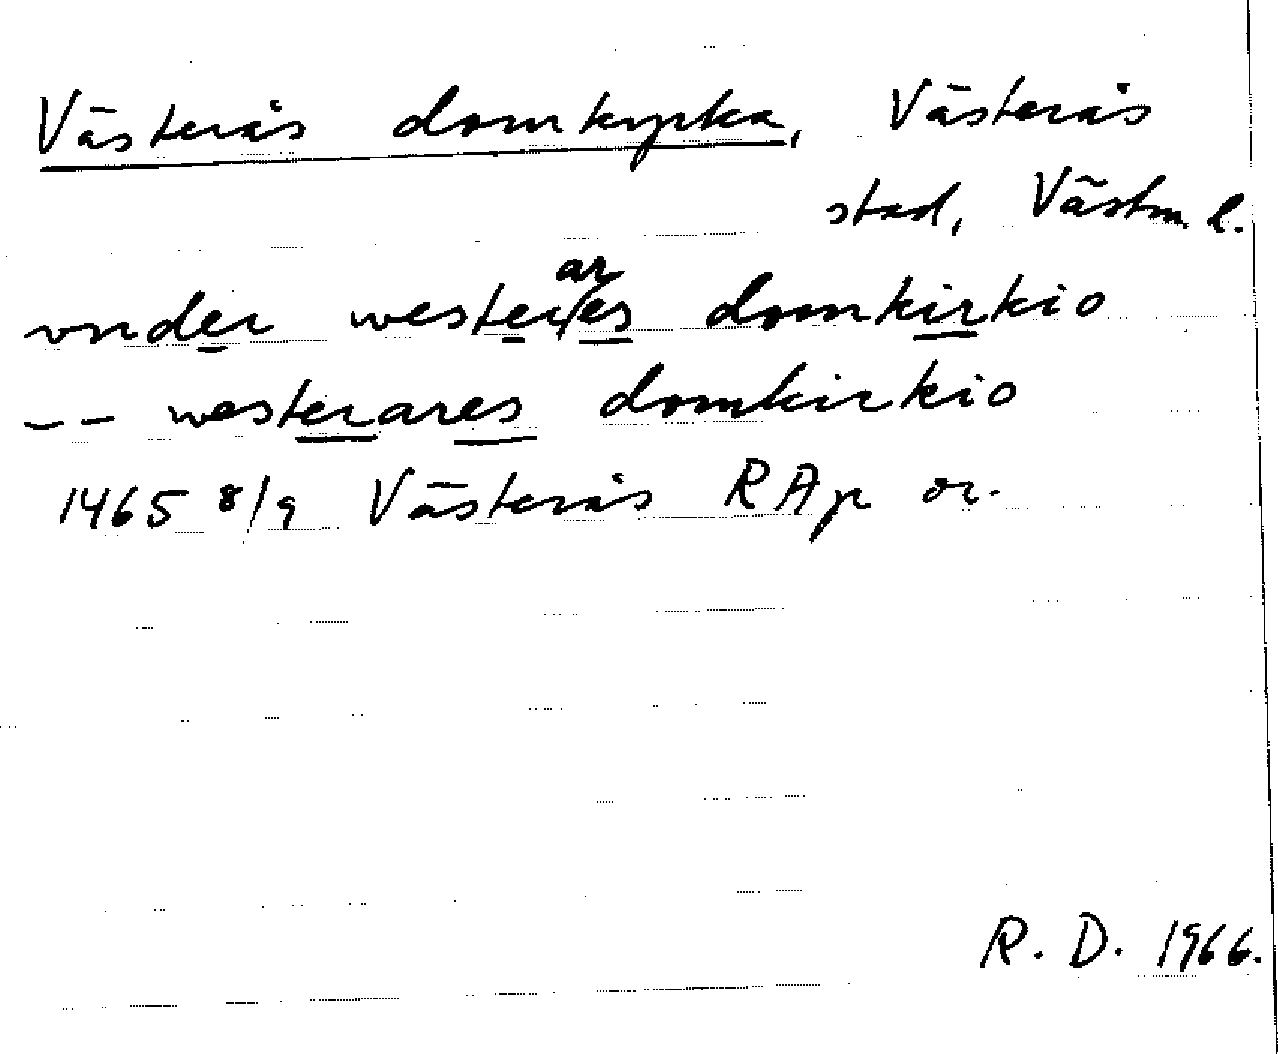 Västerås domkyrka, Västerås
stad, Västm. l.
vnder wester/es domkirkio
ar
-- westerares domkirkio
1465 8/9 Västerås RAp or.
R. D. 1966.